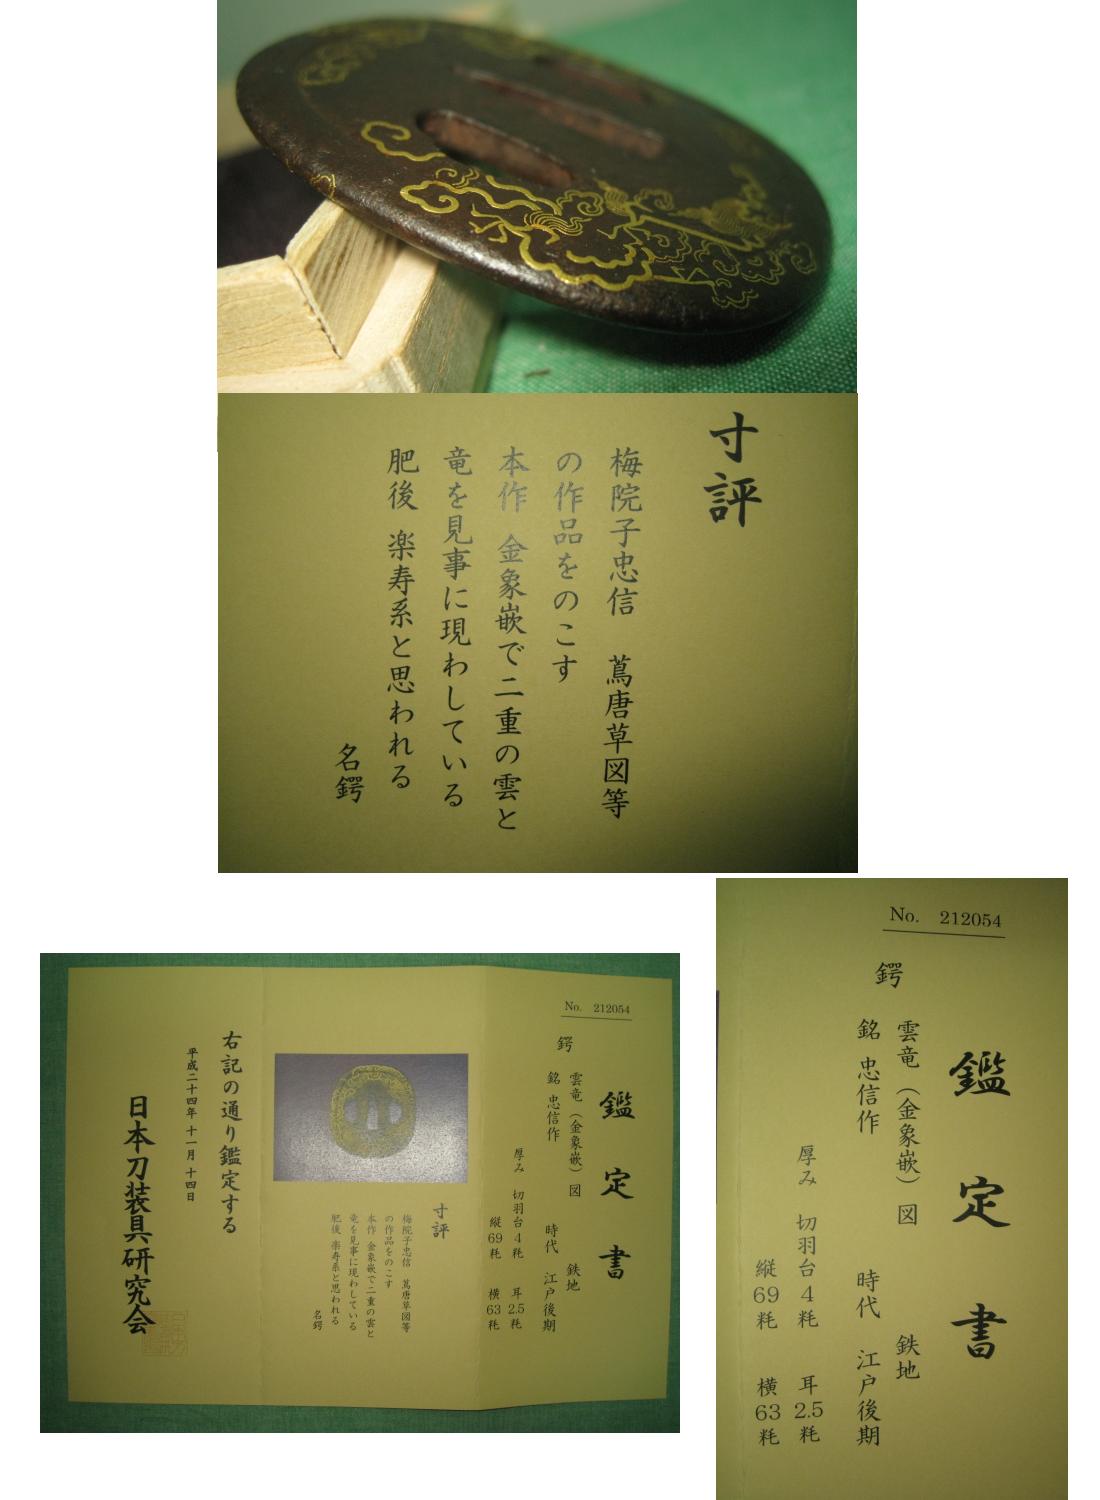 寸評
梅院子忠信　蔦唐草図等
の作品をのこす
本作　金象嵌で二重の雲と
竜を見事に現わしている
肥後　楽寿系と思われる
名鍔
No. 212054
鑑定書
鍔　雲竜（金象嵌）図　鉄地
銘　忠信作　時代　江戸後期
厚み　切羽台4粍　耳2.5粍
縦69粍　横63粍
寸評
梅院子忠信　蔦唐草図等
の作品をのこす
本作　金象嵌で二重の雲と
竜を見事に現わしている
肥後　楽寿系と思われる
名鍔
右記の通り鑑定する
平成二十四年 十一月 十四日
日本刀装具研究会
No. 212054
鑑定書
鍔　雲竜（金象嵌）図　鉄地
銘　忠信作　時代　江戸後期
厚み　切羽台4粍　耳2.5粍
縦69粍　横63粍